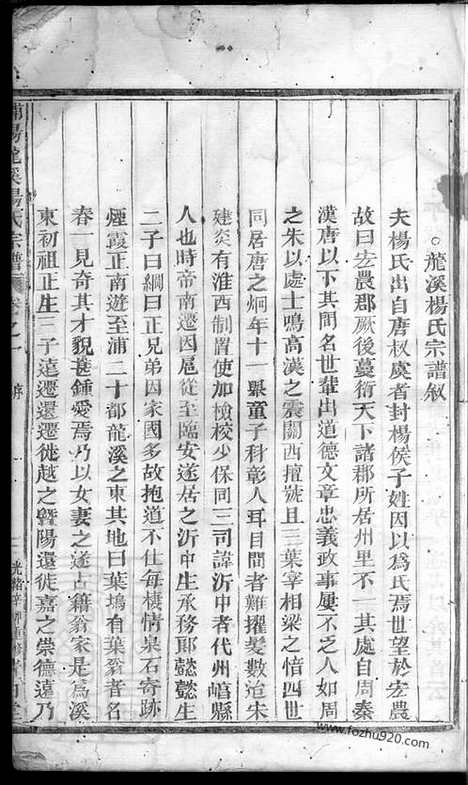 龍溪楊氏宗譜敘
夫楊氏出自唐叔虞者封楊侯子姓因以為氏焉世望於宏農
故曰宏農郡厥後蔓衍天下諸郡所居州里不一其處自周秦
漢唐以下其間名世輩出道德文章忠義政事屢不乏人如周
之朱以處士鳴高漢之震關西擅號且三葉宰相梁之愔四世
同居唐之炯年十一舉童子科彰人耳目間者難擢髮數迨宋
建炎有淮西制置使加檢校少保同三司諱沂中者代州崞縣
人也時帝南遷因扈從至臨安遂居之沂中生承務郎懿懿生
二子曰綱曰正兄弟因家國多故抱道不仕每棲情泉石寄跡
煙霞正南遊至浦二十都龍溪之東其地曰葉塢有葉翁者名
春一見奇其才貌甚鍾愛焉乃以女妻之遂占籍翁家是為溪
東初祖正生三子遠遷還遷徙越之暨陽還徙嘉之崇德遠乃
浦陽龍溪楊氏宗譜 卷之一 序
光緒辛卯重修
www.fozhu920.com